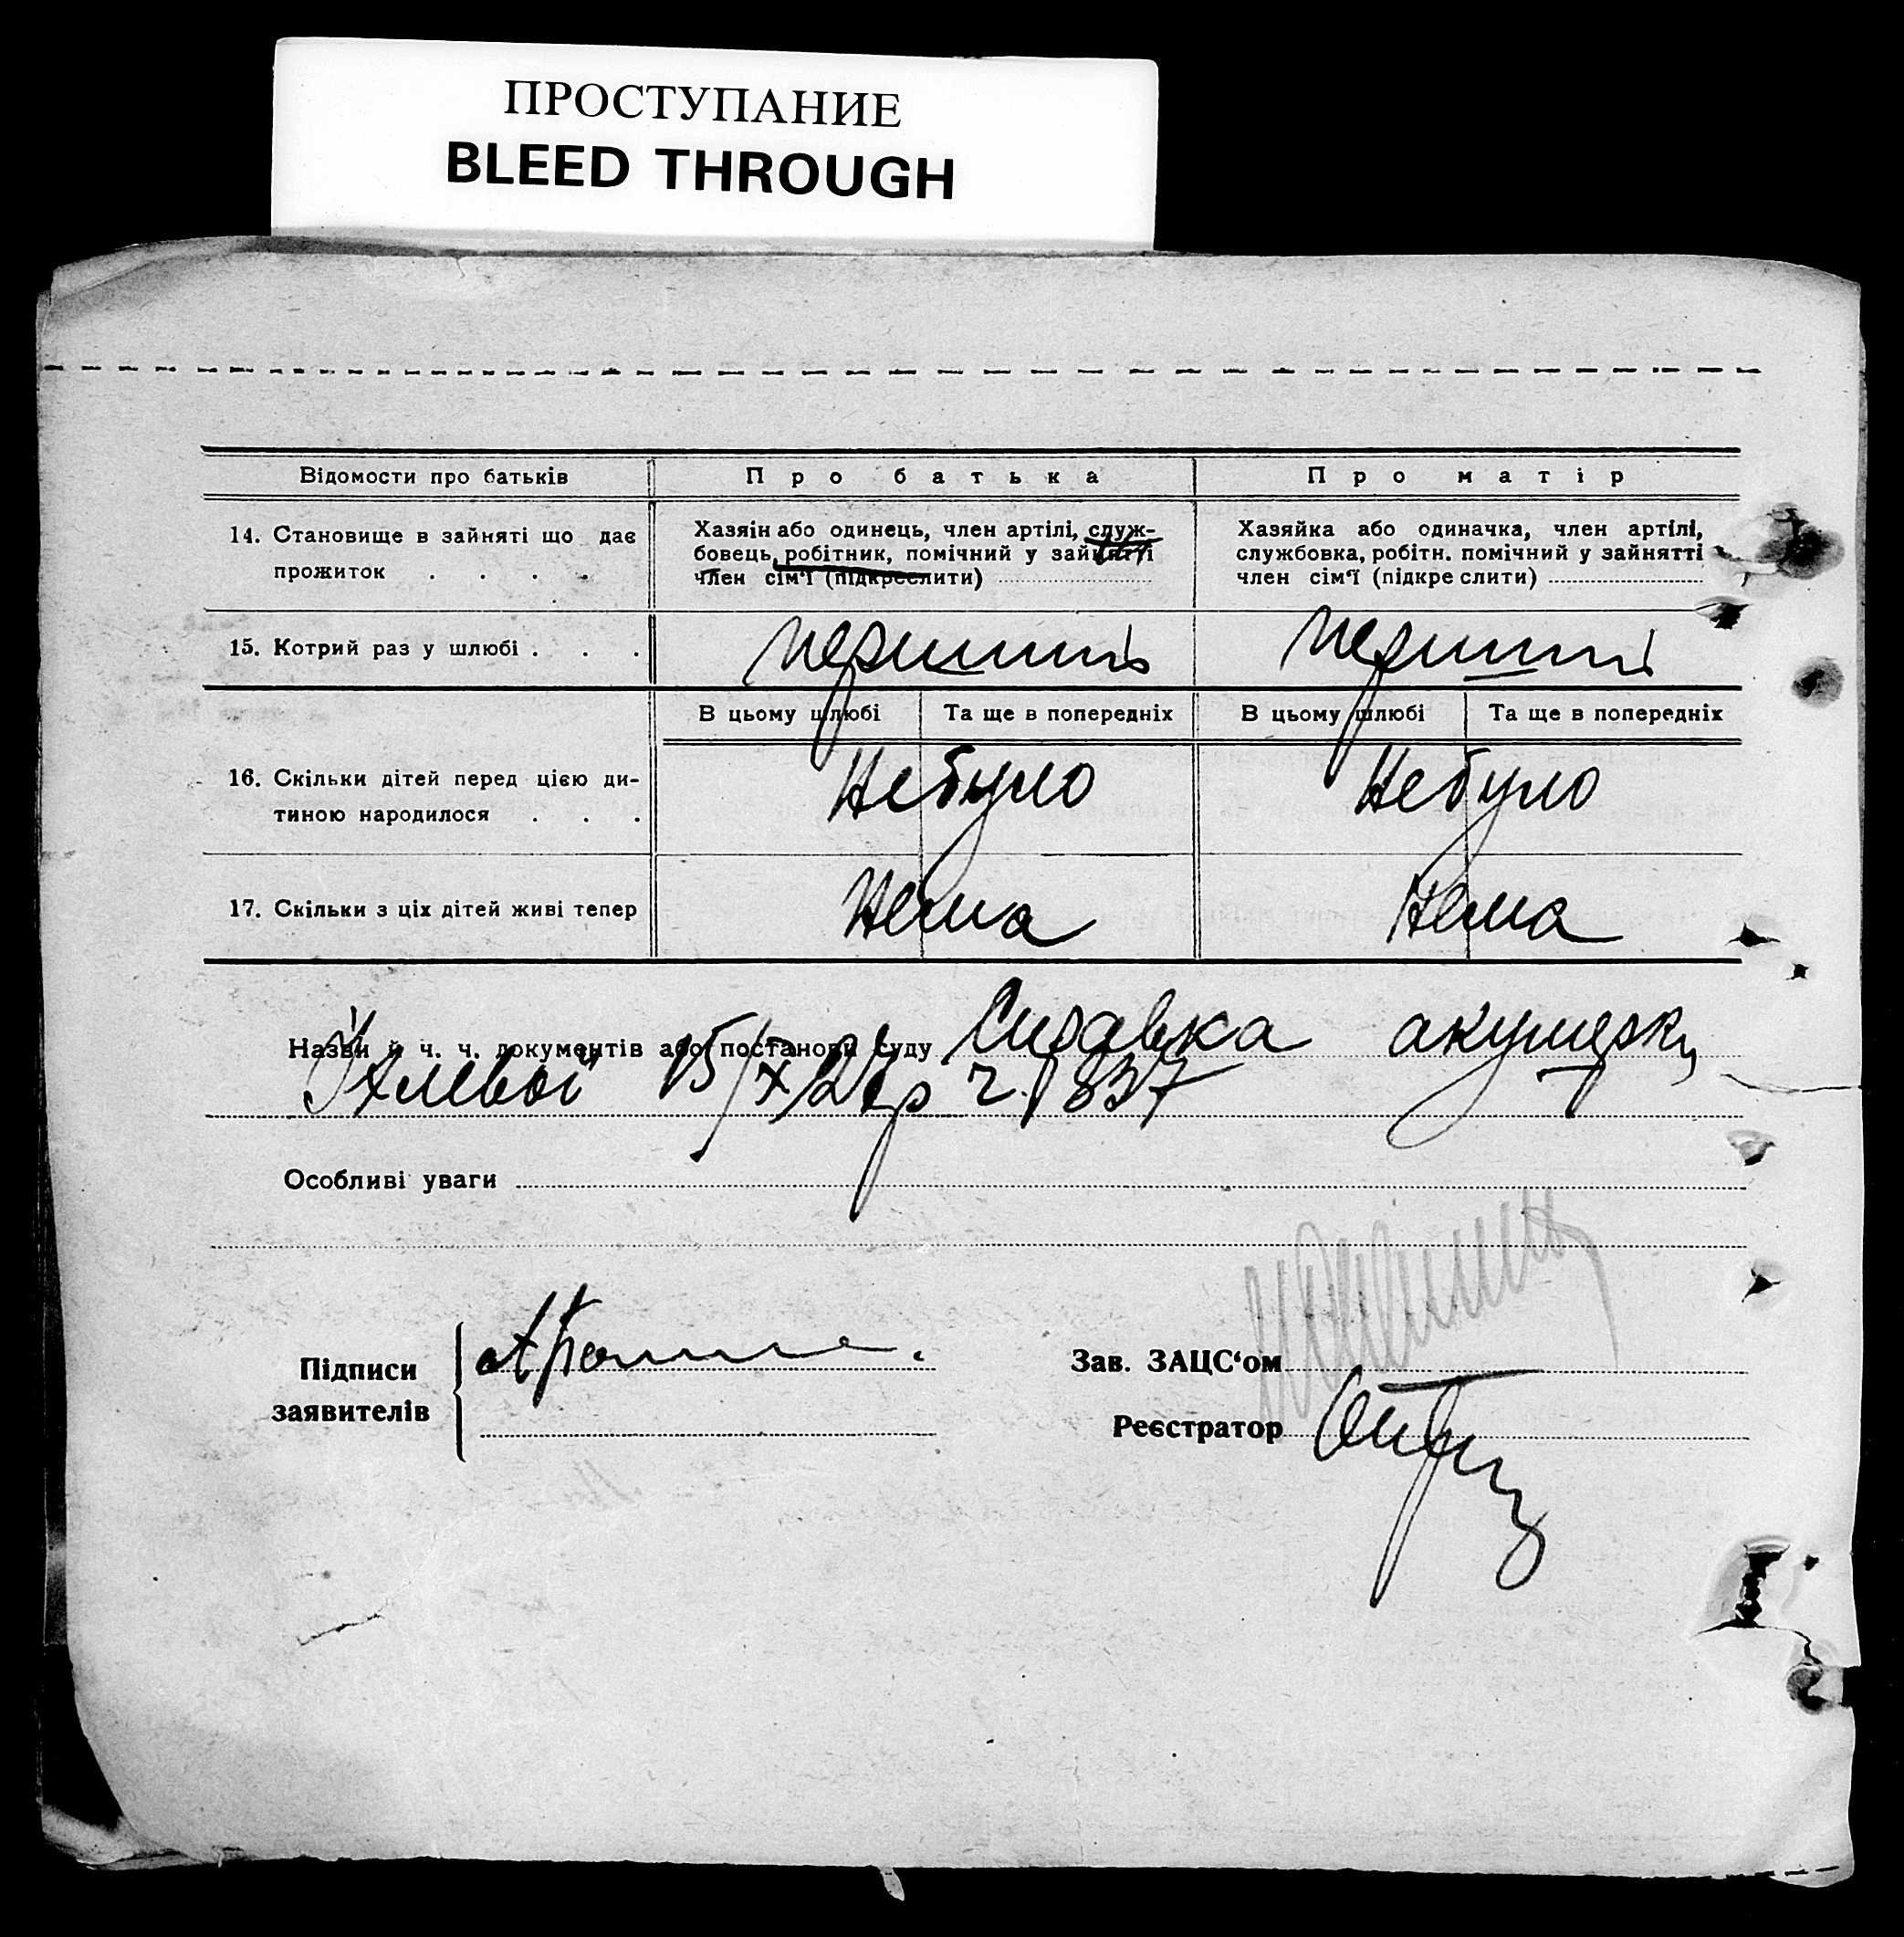 ПРОСТУПАНИЕ
BLEED THROUGH
Відомости про батьків
Про батька
Про матір
14. Становище в зайняті що дає
прожиток . . . .
Хазяін або одинець, член артілі, служ-
бовець, робітник, помічний у зайнятті
член сім'ї (підкреслити)
Хазяйка або одиначка, член артілі,
службовка, робітн. помічний у зайнятті
член сім'ї (підкре слити)
15. Котрий раз у шлюбі . . .
перший
перший
В цьому шлюбі
Та ще в попередніх
В цьому шлюбі
Та ще в попередніх
16. Скільки дітей перед цією ди-
тиною народилося . . .
Небуло
Небуло
17. Скільки з ціх дітей живі тепер
Нема
Нема
Назви й ч. ч. документів або постанови суду Справка акушерки
15/X 837
Особливі уваги
Підписи
заявителів
Зав. ЗАЦС‘ом
Реєстратор